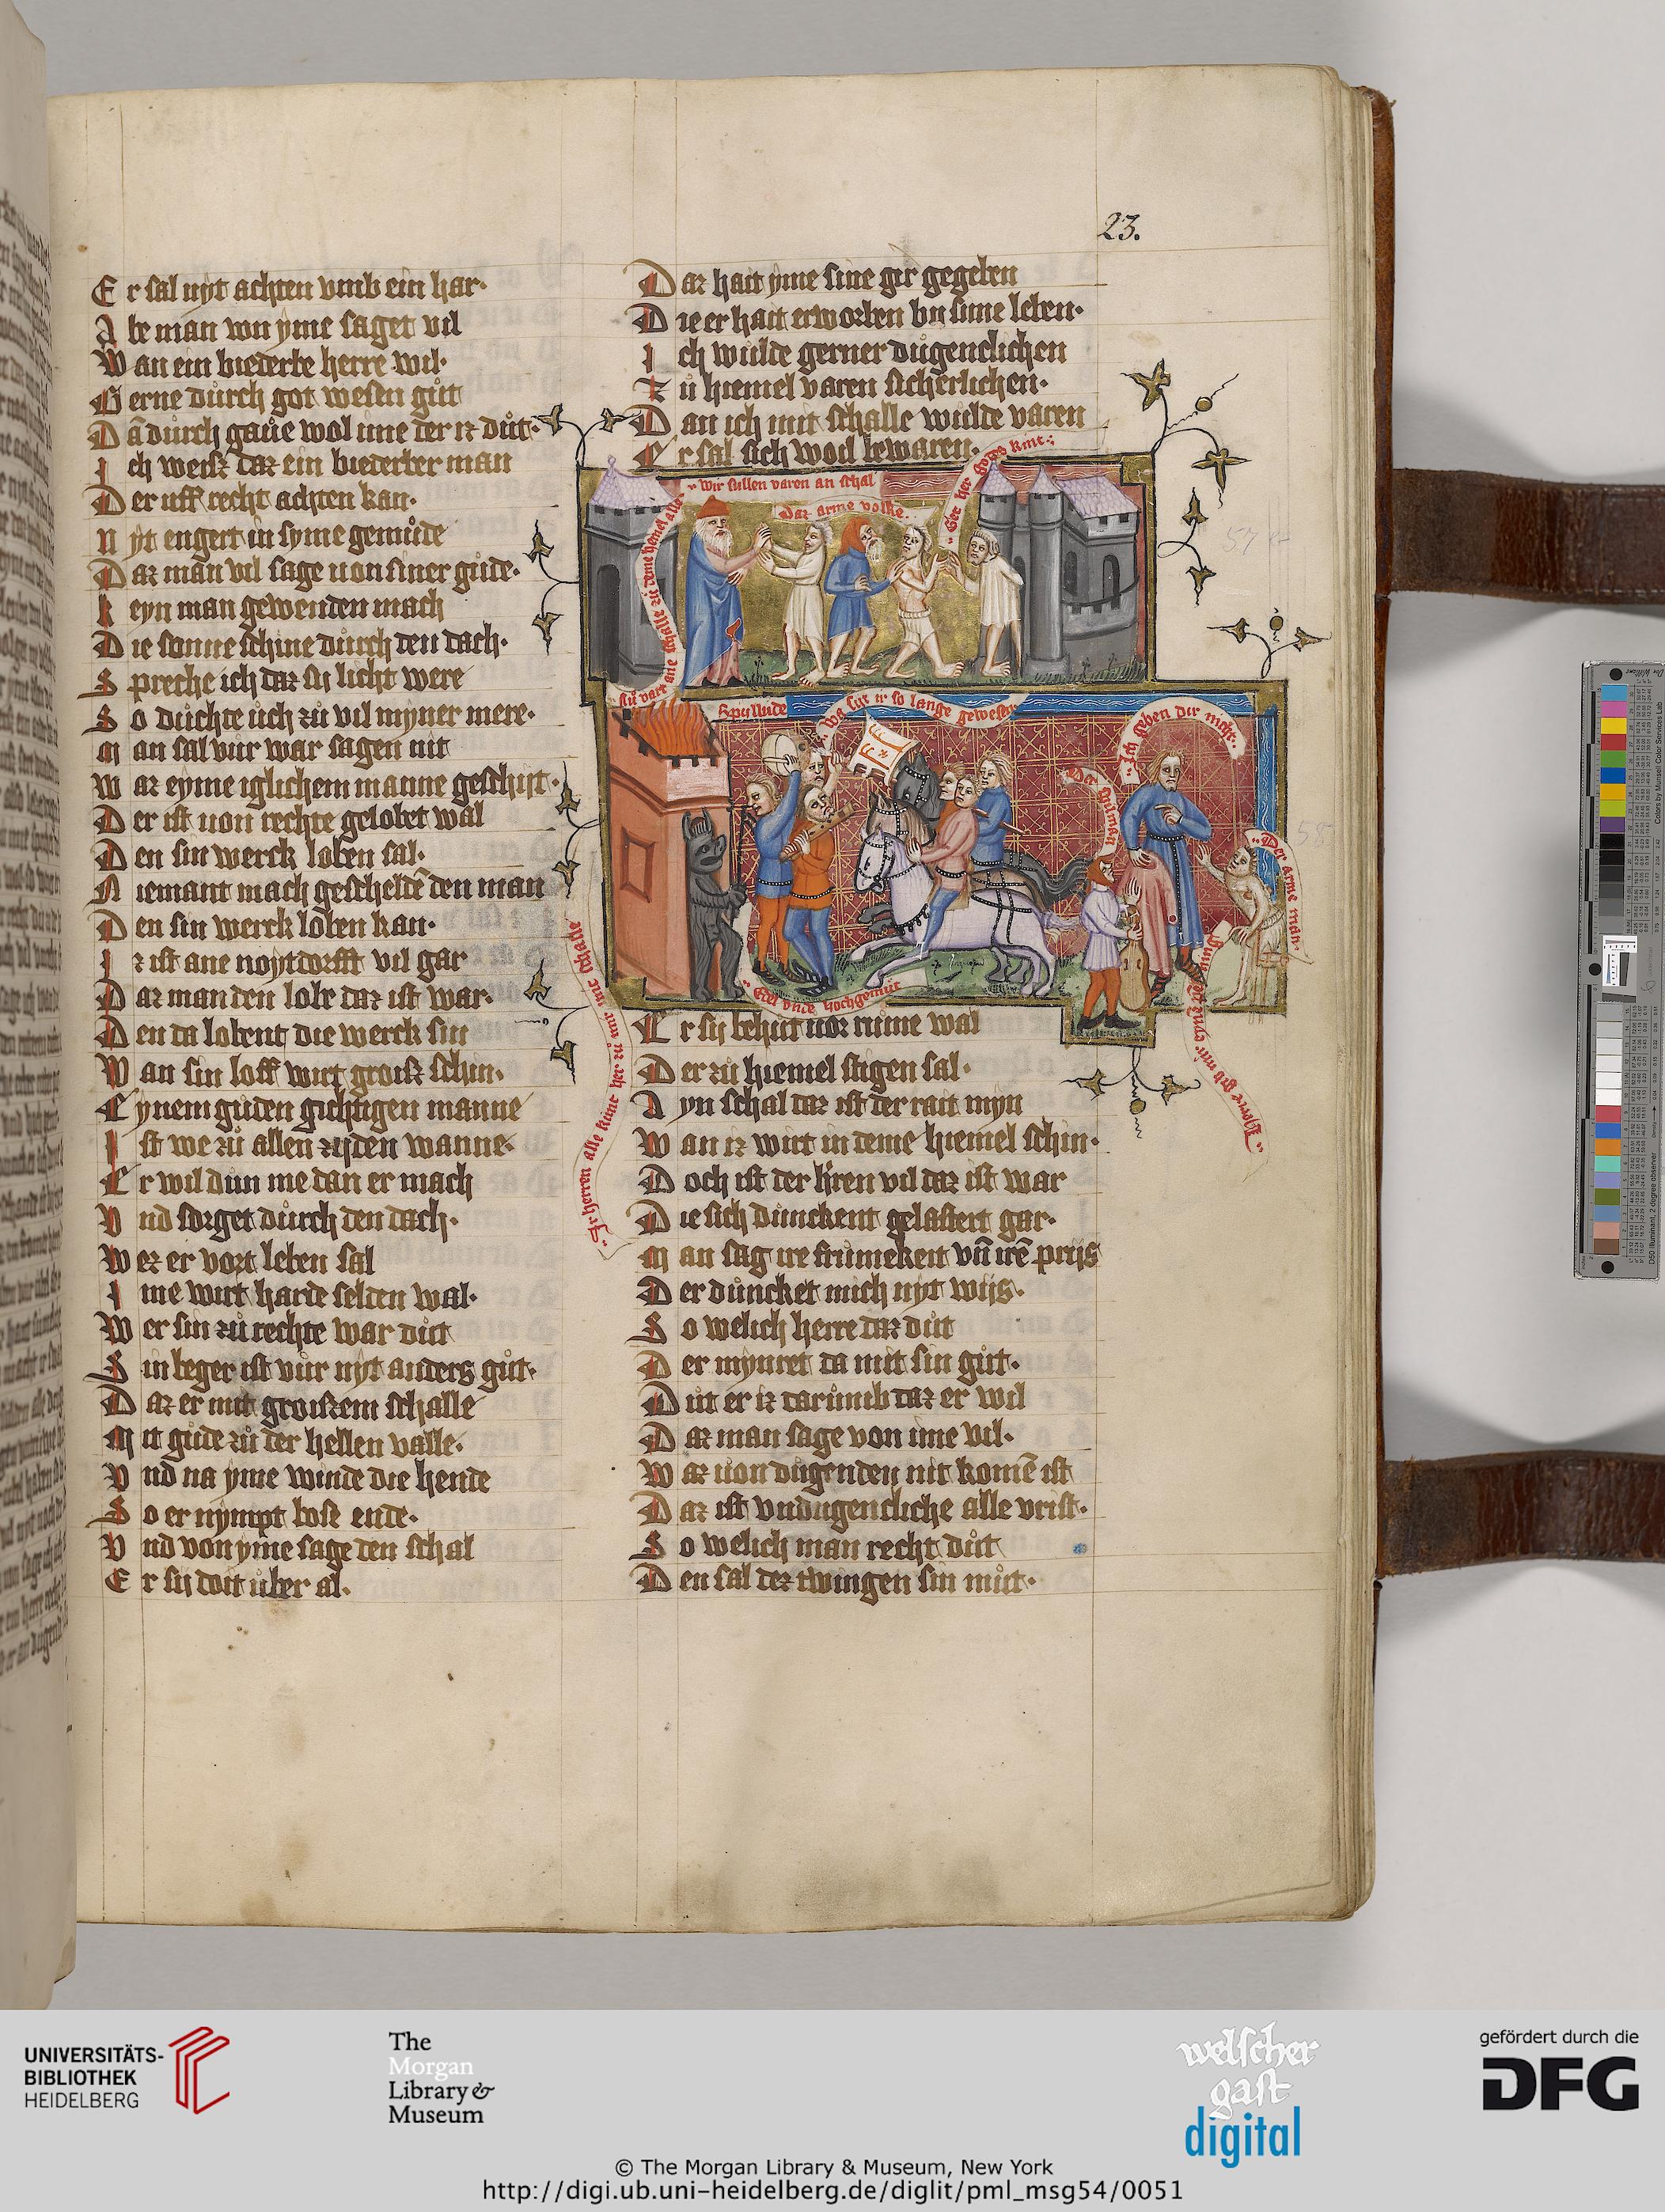 23.
E r sal nyt achten vmb ein har·
A be man von yme saget vil
W an ein biederbe herre wil·
G erne důrch got wesen gůt
D ā důrch gaůe wol ime der iz důt·
I ch weisz daz ein biederber man
D er uff recht achten kan·
N yt engert in syme gemůde
D az man vil sage uon siner gůde·
K eyn man gewenden mach
D ie sonne schine důrch den dach·
S preche ich daz sij licht were
S o důchte ůch zů vil myner mere·
M an sal vůr war sagen nit
W az eyme iglichem manne geschijt·
D er ist uon rechte gelobet wal
D en sin werck loben sal·
N iemant mach gescheldē den man
D en sin werck loben kan·
I z ist ane noytdorfft vil gar
D az man den lobe daz ist war·
D en da lobent die werck sin
W an sin loff wirt groisz schin·
E ynem gůden gichtigen manne
I st we zů allen zijden wanne·
E r wil důn me dan er mach
V nd sorget důrch den dach·
W ez er vort leben sal
I me wirt harde selden wal·
W er sin zů rechte war důt
S in beger ist vůr nyt anders gůt·
D az er mit groiszem schalle
M it gůde zů der hellen valle·
V nd na yme winde die hende
S o er nympt bose ende·
V nd von yme sage den schal
E r sij doit ůber al·
D az hait yme sine gir gegeben
D ie er hait erworben by sime leben·
I ch wůlde gerner důgenclichen
Z ů hiemel varen sicherlichen·
D an ich mit schalle wůlde varen
E r sal sich wod bewaren·
Wir sullen varen an schal
Daz arme volke·
Ger her godes kint·
sů vart ane schalle zů deme hemel alle·
Spyllude
Wa sijt ir so lange gewesen
Ich geben dir nicht·
Der
Der arme man·
Edel vnde hochgemůt
Ir herren alle kůmt her zů mir mit
Herre gib mir eyne penning
E r sij behut uor růme wal
D er zů hiemel stigen sal·
A yn schal daz ist der rait myn
W an iz wirt in deme hiemel schin·
D och ist der h'ren vil daz ist war
D ie sich důnckent gelastert gar·
M an sag ire frůmekeit vn̄ irē prijs
D er důncket mich nyt wijs·
S o welich herre daz důt
D er mynret da mit sin gůt·
D ůt er iz darůmb daz er wil
D az man sage von ime vil·
W az uon důgenden nit komē ist
D az ist vndugencliche alle vrist·
S o welich man recht důt
D en sal dez twingen sin můt·
UNIVERSITÄTS-
BIBLIOTHEK
HEIDELBERG
The
Morgan
Library &
Museum
welscher
gast
digital
gefördert durch die
DFG
© The Morgan Library & Museum, New York
http://digi.ub.uni-heidelberg.de/diglit/pml_msg54/0051